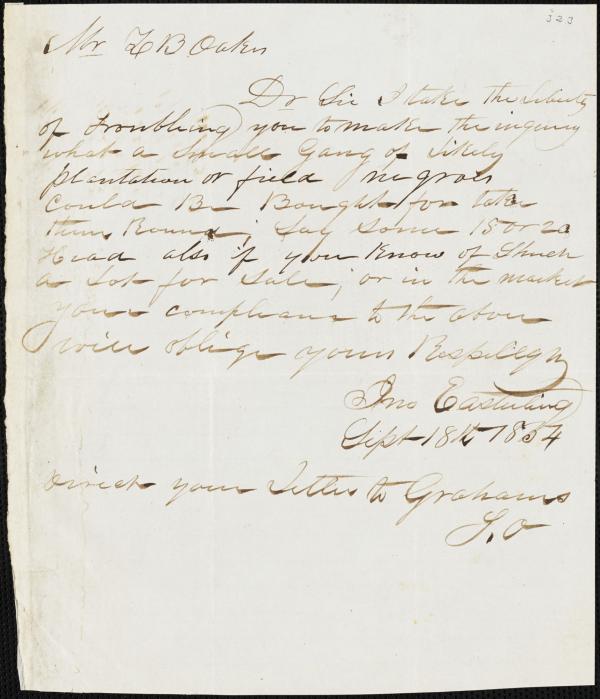 323
Mr Z B Oakes
Dr Sir I take the Liberty
of troubleing you to make the inquiry
what a Small Gang of Likely
plantation or field negroes
Could Be Bought for take
them Round; Say Some 15 or 20
Head also if you Know of Shuch
a Lot for Sale; or in the market
your complians to the above
will oblige yours
Jno Easterling
Sept 18th 1854
Direct your Letter to Grahams